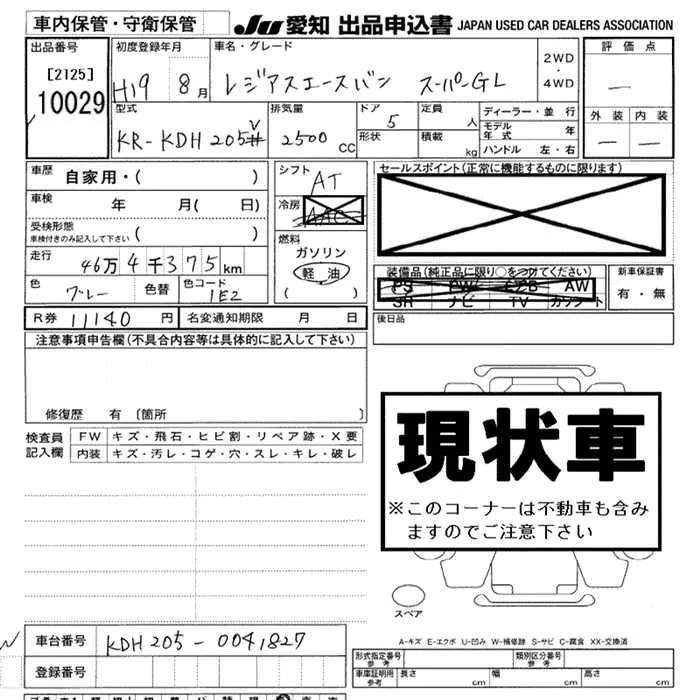 車内保管・守衛保管 JU 愛知 出品申込書 JAPAN USED CAR DEALERS ASSOCIATION
出品番号 初度登録年月 車名・グレード 2WD ・ 4WD 評価点
[2125] H19 8月 レジアスエースバン スーパーGL —
10029 型式 排気量 ドア 定員 ディーラー・並行 外装 内装
KR-KDH205V 2500 CC 5 人 モデル年式 年 — —
形状 積載 kg ハンドル 左・右
車歴 自家用・( ) シフト AT セールスポイント(正常に機能するものに限ります)
車検 年 月( 日) 冷房 AAC
受検形態 ( )
車検付きのみ記入して下さい
燃料 ガソリン
走行 46万4千375km 軽油 装備品(純正品に限り○をつけてください) 新車保証書
色 グレー 色替 色コード 1E2 ( ) PS PW AW 有・無
SR ナビ TV カセット
R券 11140円 名変通知期限 月 日 後日品
注意事項申告欄(不具合内容等は具体的に記入して下さい)
修復歴 有 [箇所 ]
検査員記入欄 FW キズ・飛石・ヒビ割・リペア跡・X要
内装 キズ・汚レ・コゲ・穴・スレ・キレ・破レ
現状車
※このコーナーは不動車も含み
ますのでご注意下さい
スペア
A-キズ E-エクボ U-凹み W-補修跡 S-サビ C-腐食 XX-交換済
車台番号 KDH205-0041827 形式指定番号 参考 類別区分番号 参考
登録番号 車庫証明用 参考 長さ cm 幅 cm 高さ cm